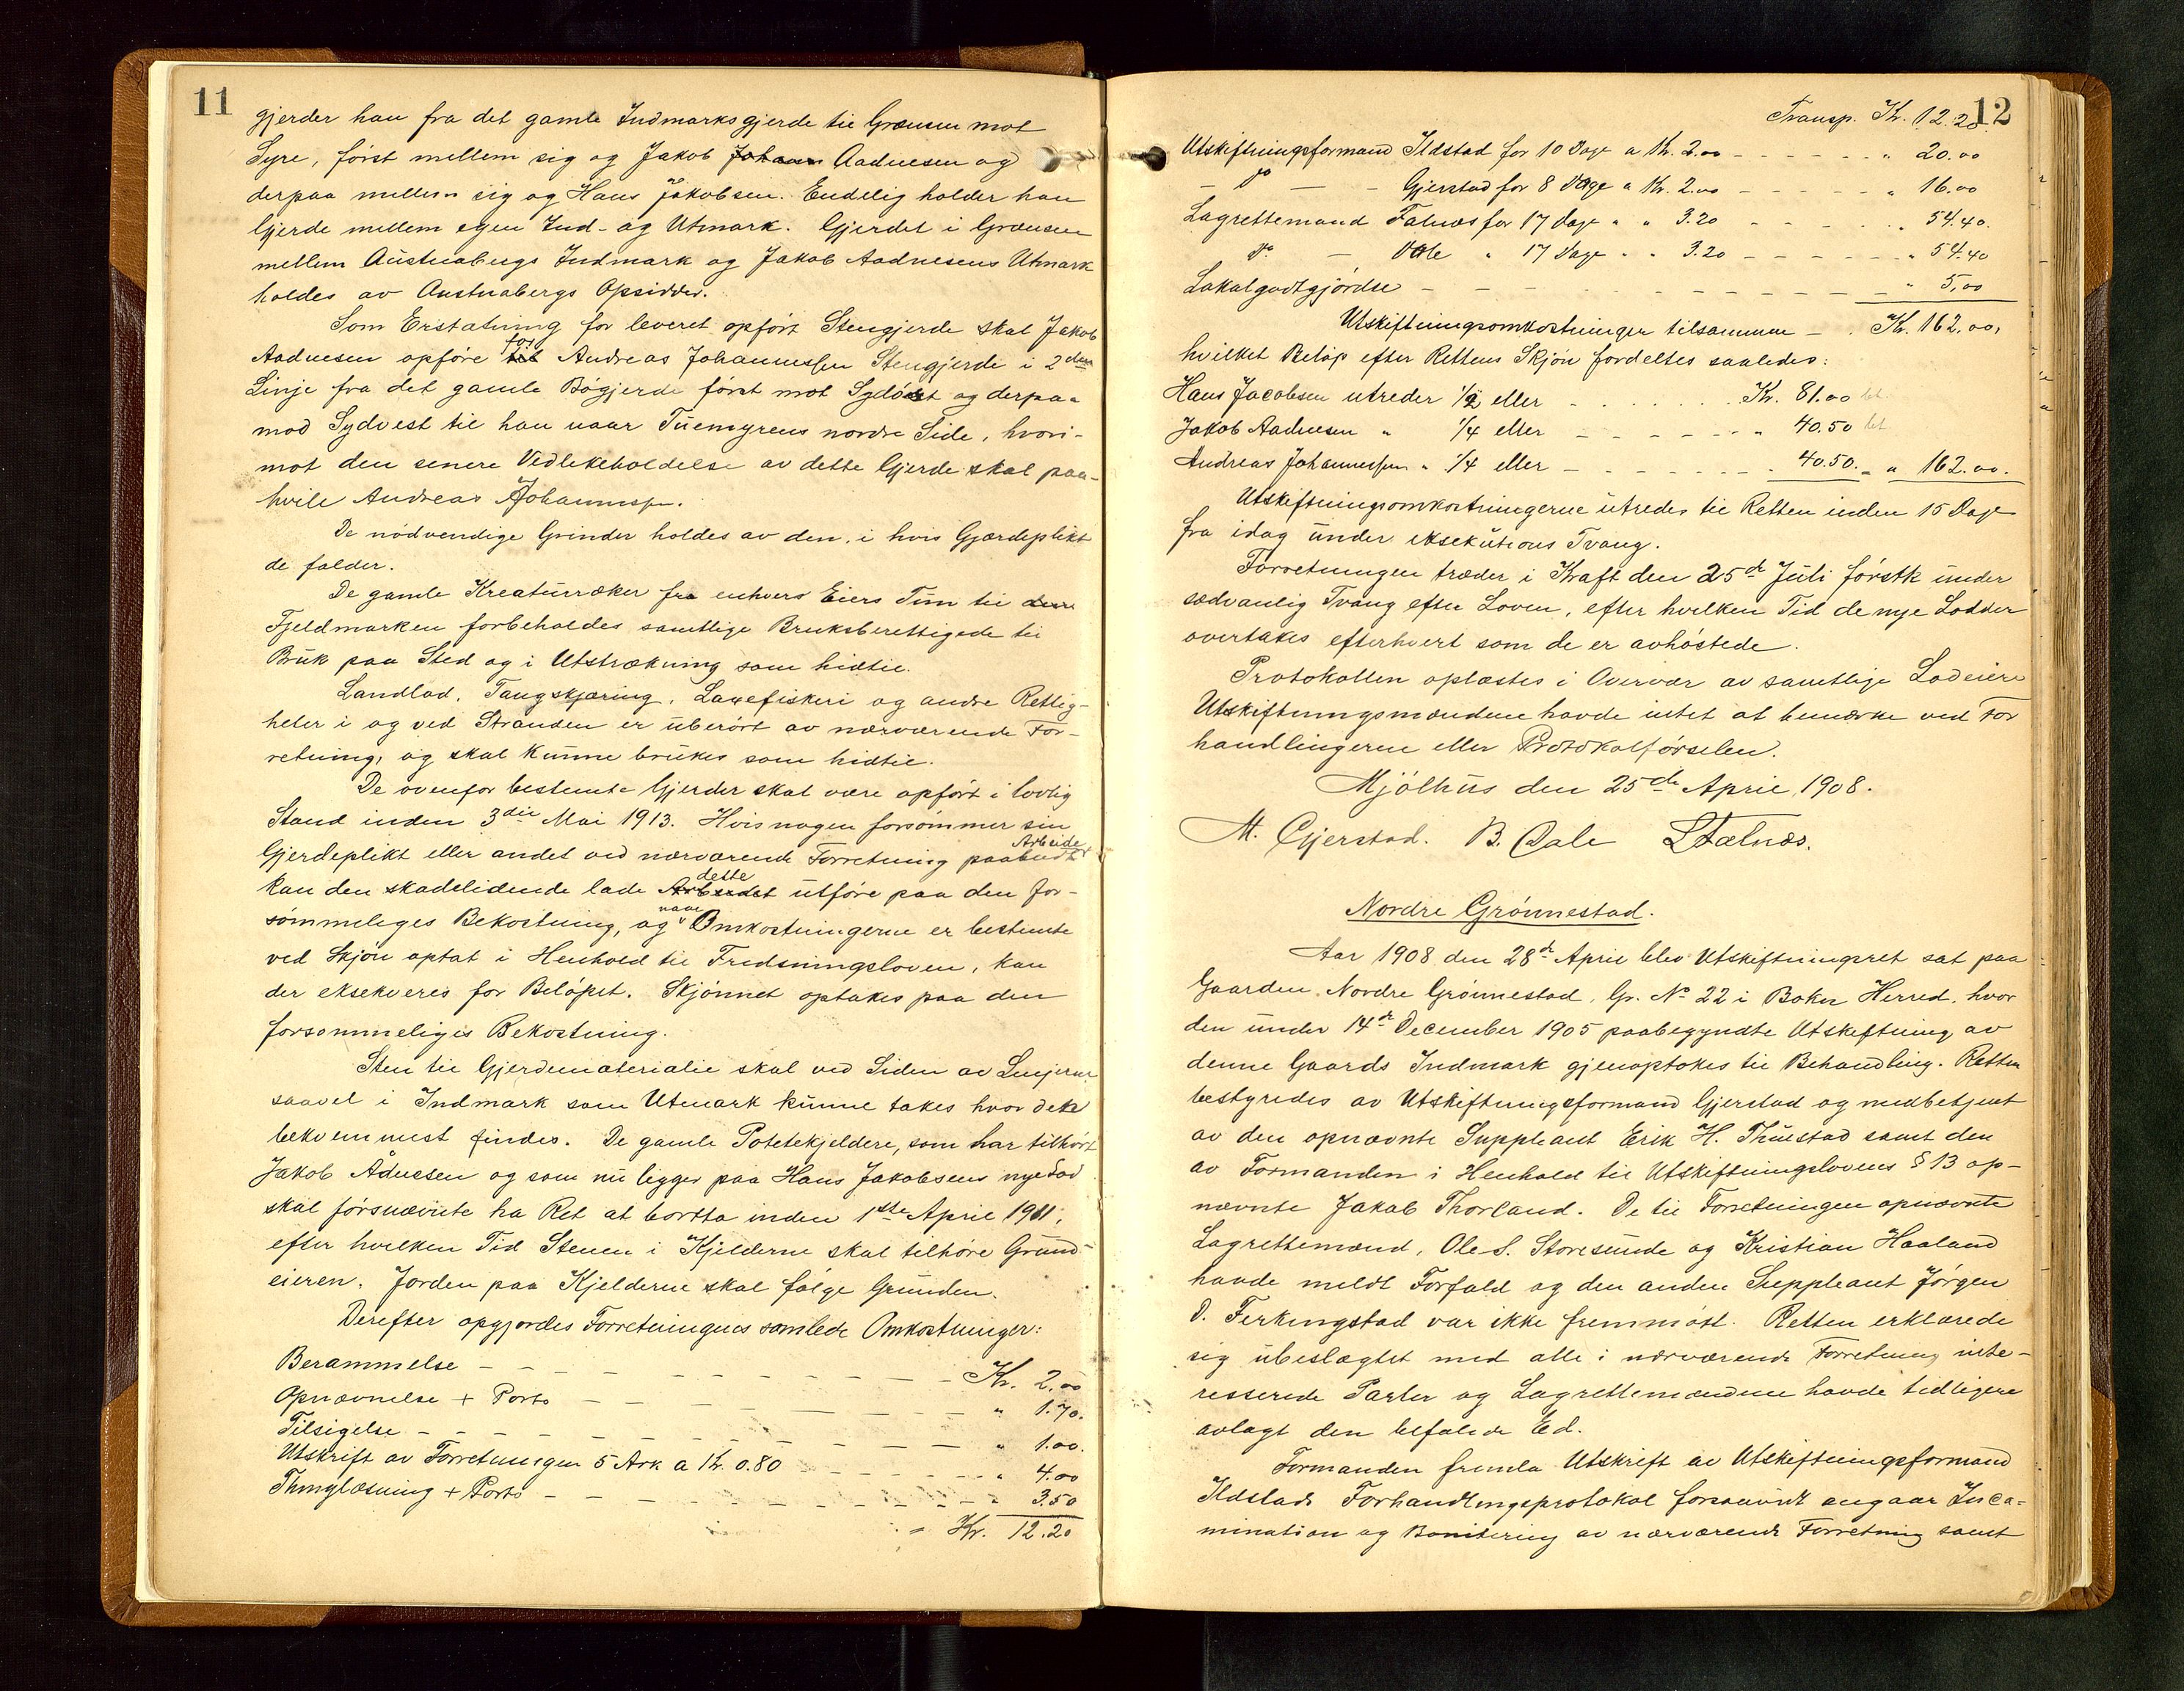 11
gjerder han fra det gamle Indmarksgjerde til Grænsen mot
Syre, først mellem sig og Jakob Johann Aadnesen og
derpaa mellem sig og Hans Jakobsen. Endelig holder han
Gjerde mellem egen Ind- og Utmark. Gjerdet i Grænsen
mellem Austnabergs Indmark og Jakob Aadnesens Utmark
holdes av Austnabergs Opsidder.
Som Erstatning for leveret opført Stengjerde skal Jakob
Aadnesen opføre til for Andreas Johannessen Stengjerde i 2den
Linje fra det gamle Bøgjerde først mot Sydøst og derpaa
mod Sydvest til han naar Tuemyrens nordre Side, hvori-
mot den senere Vedlikeholdelse av dette Gjerde skal paa-
hvile Andreas Johannessen.
De nødvendige Grinder holdes av den, i hvis Gjærdeplikt
de falder.
De gamle Kreaturræker fra enhvers Eiers Tun til
Fjeldmarken forbeholdes samtlige Bruksberettigede til
Bruk paa Sted og i Utstrækning som hidtil.
Landlod, Tangskjæring, Laxefiskeri og andre Rettig-
heter i og ved Stranden er uberørt av nærværende For-
retning, og skal kunne brukes som hidtil.
De ovenfor bestemte Gjerder skal være opført i lovlig
Stand inden 3die Mai 1913. Hvis nogen forsømmer sin
Gjerdeplikt eller andet ved nærværende Forretning paabudt Arbeide,
kan den skadelidende lade Arbeidet dette utføre paa den for-
sømmeliges Bekostning, og naar Omkostningerne er bestemte
ved Skjøn optat i Henhold til Fredningsloven, kan
der eksekveres for Beløpet. Skjønnet optakes paa den
forsømmeliges Bekostning.
Sten til Gjerdematerialie skal ved Siden av Linjerne
saavel i Indmark som Utmark kunne takes hvor dette
bekvemmest findes. De gamle Potetekjeldere, som har tilhørt
Jakob Ådnesen og som nu ligger paa Hans Jakobsens nye Lod
skal førsnævnte ha Ret at bortta inden 1ste April 1911,
efter hvilken Tid Stenen i Kjelderne skal tilhøre Grund-
eieren. Jorden paa Kjelderne skal følge Grunden.
Derefter opgjordes Forretningens samlede Omkostninger:
Berammelse - - - - Kr. 2.00
Opnævnelse + Porto - - - - " 1.70.
Tilsigelse - - - - " 1.00.
Utskrift av Forretningen 5 Ark a Kr. 0.80 - - - " 4.00
Thinglæsning + Porto - - - - " 3.50
Kr. 12.20
12
Transp. Kr. 12.20.
Utskiftningsformand Ildstad for 10 Dage a Kr. 2.00 - - - " 20.00
- do - Gjerstad for 8 Dage a Kr. 2.00 - - - " 16.00
Lagrettemand Falnæs for 17 Dage " " 3.20 - - - " 54.40.
do - Dale " 17 Dage " " 3.20 - - - " 54.40
Lokalgodtgjørdse - - - - " 5,00
Utskiftningsomkostninger tilsammen - Kr. 162.00,
hvilket Beløp efter Rettens Skjøn fordeltes saaledes:
Hans Jacobsen utreder 1/2 eller - - - Kr. 81.00 bet
Jakob Aadnesen " 1/4 eller - - - " 40.50 bet
Andreas Johannessen " 1/4 eller - - - " 40.50. - " 162.00.
Utskiftningsomkostningerne utredes til Retten inden 15 Dage
fra idag under eksekutions Tvang.
Forretningen træder i Kraft den 25de Juli førstk under
sedvanlig Tvang efter Loven, efter hvilken Tid de nye Lodder
overtakes efterhvert som de er avhøstede.
Protokollen oplæstes i Overvær av samtlige Lodeiere
Utskiftningsmændene havde intet at bemærke ved For
handlingerne eller Protokolførselen.
Mjølhus den 25de April 1908.
M. Gjerstad. B. Dale L Falnæs.
Nordre Grønnestad.
Aar 1908 den 28de April blev Utskiftningsret sat paa
Gaarden Nordre Grønnestad, Gr. No 22 i Bokn Herred, hvor
den under 14de December 1905 paabegyndte Utskiftning av
denne Gaards Indmark gjenoptokes til Behandling. Retten
bestyredes av Utskiftningsformand Gjerstad og medbetjent
av den opnævnte Suppleant Erik H. Thuestad samt den
av Formanden i Henhold til Utskiftningslovens § 13 op-
nævnte Jakob Thorland. De til Forretningen opnævnte
Lagrettemænd, Ole S. Storesunde og Kristian Haaland
havde meldt Forfald og den anden Suppleant Jørgen
D. Ferkingstad var ikke fremmøtt. Retten erklærede
sig ubeslægtet med alle i nærværende Forretning inte-
resserede Parter og Lagrettemændene havde tidligere
avlagt den befalede Ed.
Formanden fremla Utskrift av Utskiftningsformand
Ildstads Forhandlingsprotokol forsaavidt angaar Inca-
mination og Bonitering av nærværende Forretning samt